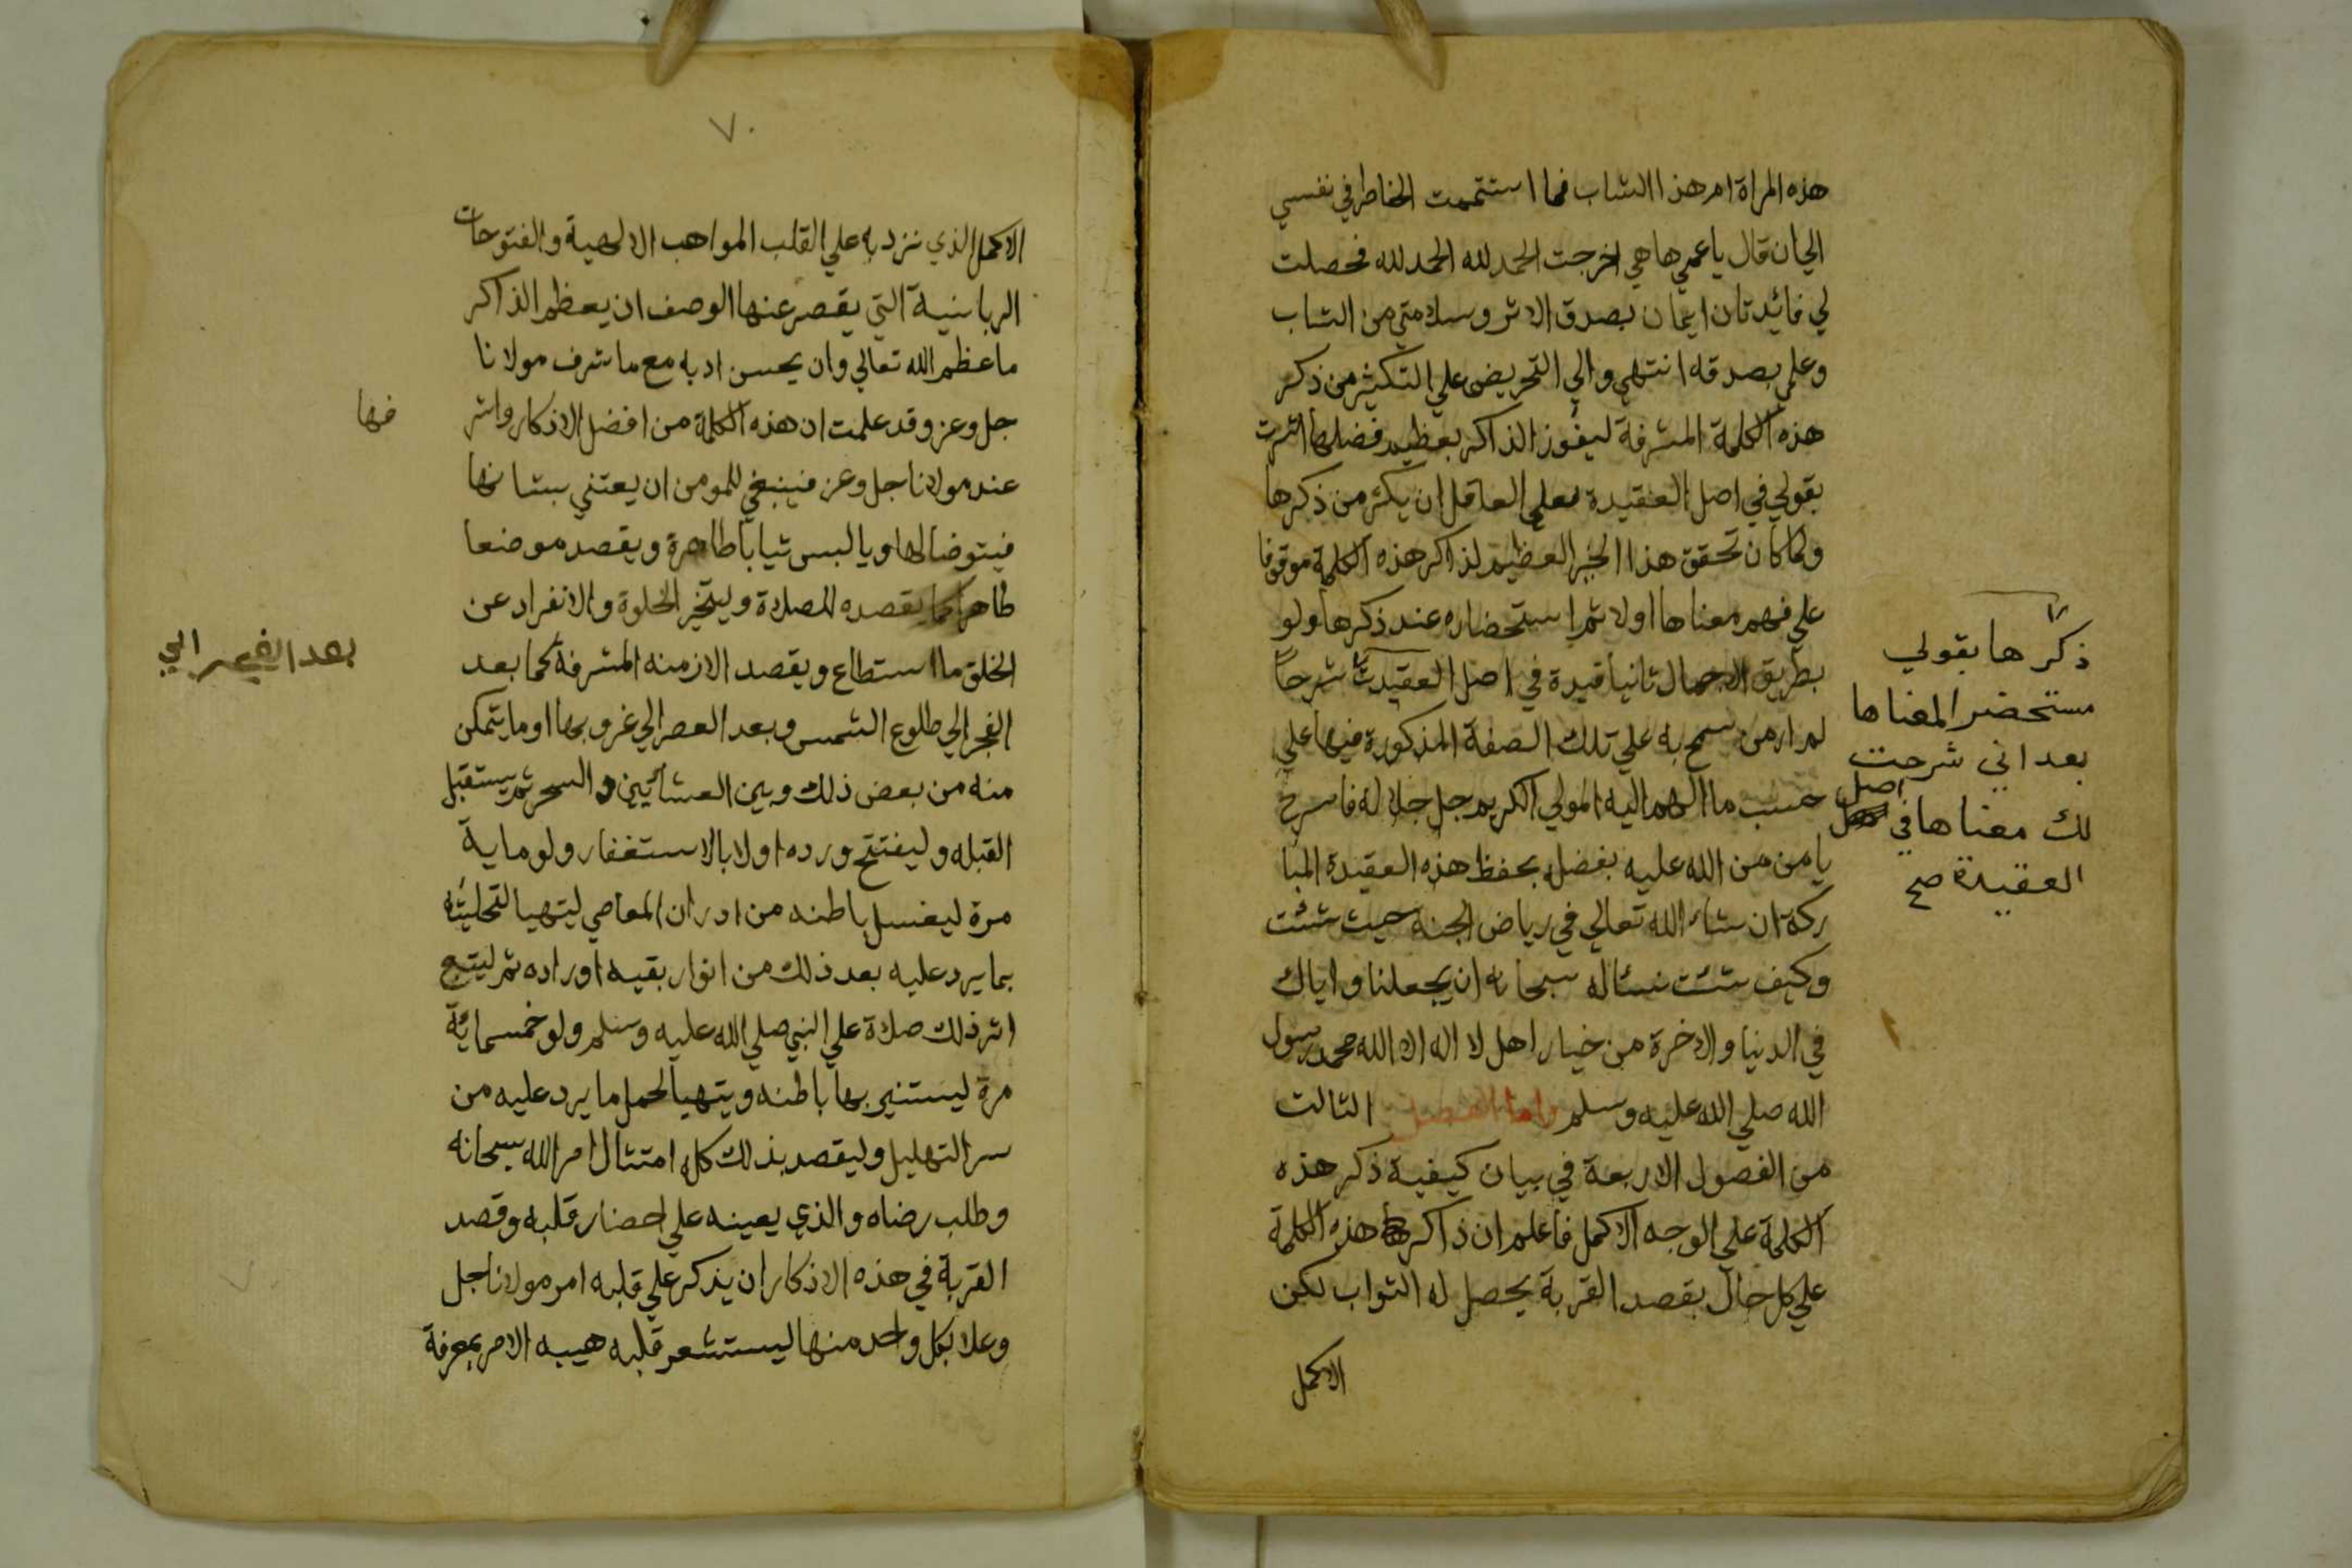 هذه المراة ام هذا الشاب فما استتممت الخاطر في نفسي
الي ان قال يا عمي ها هي اخرجت الحمد لله الحمد لله فحصلت
لي فائدتان ايمان بصدق الاثر وسلامتي من الشاب
وعلمي بصدقه انتهي والي التحريض علي التكثير من ذكر
هذه الكلمة المشرفة ليفوز الذاكر بعظيم فضلها اشرت
بقولي في اصل العقيدة فعلي العاقل ان يكثر من ذكرها
ولما كان تحقق هذا الخير العظيم لذاكر هذه الكلمة موقوفا
علي فهم معناها اولا ثم استحضاره عند ذكرها ولو
بطريق الاجمال ثانيا قيدة في اصل العقيدة شرحا
لم ار من سمح به علي تلك الصفة المذكورة فيها علي
حسب ما الهم اليه المولي الكريم جل جلاله فاسرح
يا من من الله عليه بفضله بحفظ هذه العقيدة المبا
ركة ان شاء الله تعالي في رياض الجنه حيث شئت
وكيف شئت نسئاله سبحانه ان يجعلنا واياك
في الدنيا والاخرة من خيار اهل لا اله الا الله محمد رسول
الله صلي الله عليه وسلم واما الفصل الثالث
من الفصول الاربعة في بيان كيفية ذكر هذه
الكلمة علي الوجه الاكمل فاعلم ان ذاكر هذه الكلمة
علي كل حال بقصد القربة يحصل له الثواب لكن
الاكمل
ذكرها بقولي
مستحضر المعناها
بعد اني شرحت
لك معناها في اصل
العقيدة صح
٧٠
الاكمل الذي تزد به علي القلب المواهب الالهية والفتوحات
الربانية التي يقصر عنها الوصف ان يعظم الذاكر
ما عظم الله تعالي وان يحسن ادبه مع ما شرف مولانا
جل وعز وقد علمت ان هذه الكلمة من افضل الاذكار واشر
فها
عند مولانا جل وعز فينبغي للمومن ان يعتني بشانها
فيتوضا لها ويالبس ثيابا طاهرة ويقصد موضعا
طاهرا كما يقصده للصلاة وليتخير الخلوة والانفراد عن
الخلق ما استطاع ويقصد الازمنه المشرفة كما بعد
بعد الفجر الي
الفجر الي طلوع الشمس وبعد العصر الي غروبها او ما يتمكن
منه من بعض ذلك وبين العشائين والسحر ثم يستقبل
القبله وليفتتح ورده اولا بالاستغفار ولو ماية
مرة ليغسل باطنه من ادران المعاصي ليتهيا لتحليته
بما يرد عليه بعد ذلك من انوار بقيه اوراده ثم ليتبع
اثر ذلك صلاة علي النبي صلي الله عليه وسلم ولو خمسماية
مرة ليستنير بها باطنه ويتهيا لحمل ما يرد عليه من
سر التهليل وليقصد بذلك كله امتثال امر الله سبحانه
وطلب رضاه والذي يعينه علي احضار قلبه وقصد
القربة في هذه الاذكار ان يذكر علي قلبه امر مولانا جل
وعلا بكل واحد منها ليستشعر قلبه هيبه الامر بمعرفة